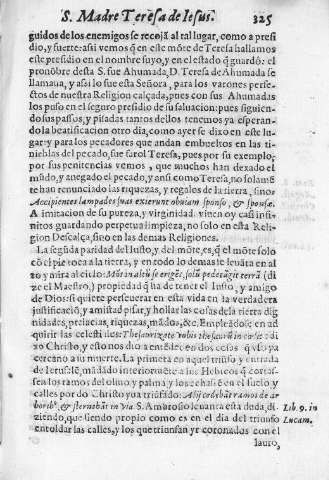 S. Madre Teresa de Iesus. 325
guidos de los enemigos se recojã al tal lugar, como a presi
dio, y fuerte: assi vemos q̃ en este mõte de Teresa hallamos
este presidio en el nombre suyo, y en el estado q̃ guardò: el
pronõbre desta S. fue Ahumada, D. Teresa de Ahumada se
llamaua, y assi lo fue esta Señora, para los varones perfe-
ctos de nuestra Religion calçada, pues con sus Ahumadas
los puso en el seguro presidio de su saluacion: pues siguien-
do sus passos, y pisadas tantos dellos tenemos ya esperan-
do la beatificacion otro dia, como ayer se dixo en este lu-
gar: y para los pecadores que andan embueltos en las ti-
nieblas del pecado, fue farol Teresa, pues por su exemplo,
por sus penitencias vemos, que muchos han dexado el
mũdo, y anegado el pecado, y ansi como Teresa, no solamẽ
te han renunciado las riquezas, y regalos de la tierra, sino:
Accipientes lampades suas exierunt obuiam sponso, & sponsæ.
A imitacion de su pureza, y virginidad viuen oy casi infi-
nitos guardando perpetua limpieza, no solo en esta Reli-
gion Descalça, sino en las demas Religiones.
La segũda paridad del Iusto, y del mõte, es, q̃ el mõte solo
cõ el pie toca a la tierra, y en todo lo demas se leuãta en al
to y mira al cielo: Mõs in altũ se eriges, solũ pede tãgit terrã (di
ze el Maestro,) propiedad q̃ ha de tener el Iusto, y amigo
de Dios: si quiere perseuerar en esta vida en la verdadera
justificaciõ, y amistad pisar, y hollar las cosas de la tierra dig
nidades, prelacias, riquezas, mãdos, &c. Empleãdose en ad
quirir las celestiales: Thesaurizate vobis thesauros in cælo: cõ
zo Christo, y esto nos dio a entẽder en dos cosas q̃ vso ya
cercano a su muerte. La primera en aquel triunfo y entrada
de Ierusalẽ, mãdado interiormẽte a los Hebreos q̃ cortas-
sen los ramos del oliuo, y palma y los echassẽ en el suelo, y
calles por dõ Christo yua triũfado: Alij cædebãt ramos de ar
boribᵒ, & sternebãt in via. S. Ambrosio leuanta esta duda, di-
ziendo, que siendo propio como es en el dia del triunfo
entoldar las calles, y los que triunfan yr coronados con el
lauro,
Lib. 9. in
Lucam.